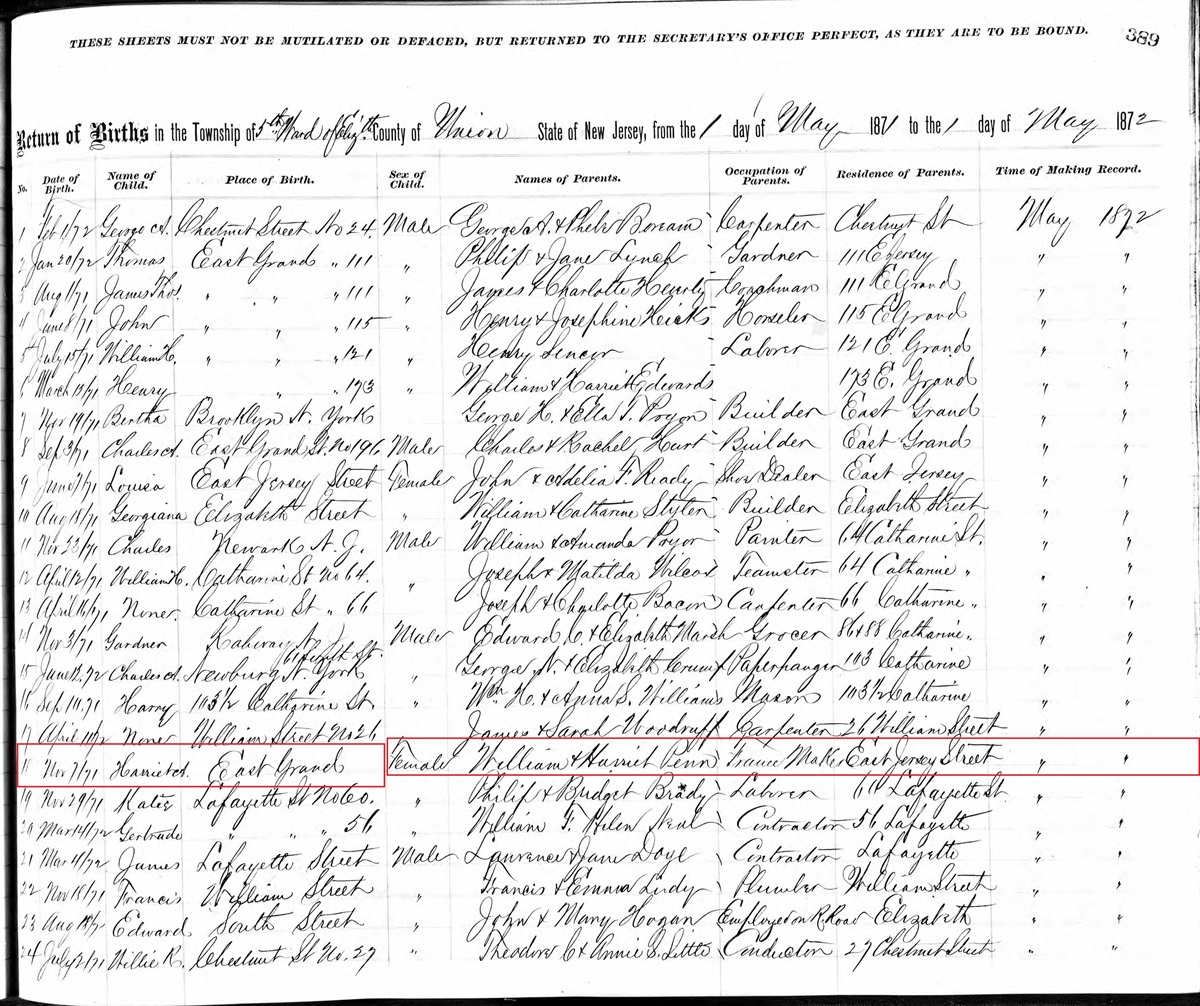 THESE SHEETS MUST NOT BE MUTILATED OR DEFACED, BUT RETURNED TO THE SECRETARY'S OFFICE PERFECT, AS THEY ARE TO BE BOUND.
389
Return of Births in the Township of 5th Ward of Eliz'th County of Union State of New Jersey, from the 1 day of May 1871 to the 1 day of May 1872
No. Date of Birth. Name of Child. Place of Birth. Sex of Child. Names of Parents. Occupation of Parents. Residence of Parents. Time of Making Record.
1 Feb 1/72 George A. Chestnut Street No 24. Male George A. & Phebe Boream Carpenter Chestnut St May 1872
2 Jan 20/72 Thomas East Grand " 111 " Philip & Jane Lynch Gardner 111 E Jersey " "
3 Aug 1/71 James Thos. " " " 111 " James & Charlotte Coachman 111 E Grand " "
4 June 8/71 John " " " 115 " Henry & Josephine Hicks Horseler 115 E Grand " "
5 July 15/71 William H. " " " 121 " Henry Sencer Laborer 121 E. Grand " "
6 March 13/71 Henry " 173 " William & Harriet Edwards 173 E. Grand " "
7 Nov 19/71 Bertha Brooklyn N. York George H. & Ella T. Pryor Builder East Grand " "
8 Sep 3/71 Charles A. East Grand St. No 196 Male Charles & Rachel Hurt Builder East Grand " "
9 June 7/71 Louisa East Jersey Street Female John & Adelia F. Ready Shoe Dealer East Jersey " "
10 Aug 18/71 Georgiana Elizabeth Street " William & Catharine Styler Builder Elizabeth Street " "
11 Nov 23/71 Charles Newark N. J. Male William & Amanda Pryor Painter 64 Catharine St. " "
12 April 12/71 William H. Catharine St No 64. " Joseph & Matilda Wilcox Teamster 64 Catharine " " "
13 April 16/71 None. Catharine St " 66 Joseph & Charlotte Bacon Carpenter 66 Catharine " " "
14 Nov 3/71 Gardner Rahway N J Male Edward C. & Elizabeth Marsh Grocer 86 & 88 Catharine " " "
15 June 12/72 Charles A. Newburg N. York " George N. & Elizabeth Crump Paperhanger 103 Catharine " "
16 Sep 10/71 Harry 103 1/2 Catharine St. " Wm H. & Anna S. Williams Mason 103 1/2 Catharine " "
17 April None William Street No 26 James & Sarah Woodruff Carpenter 26 William Street " "
18 Nov 7/71 Harriet A. East Grand Female William & Harriet Penn Frame Maker East Jersey Street " "
19 Nov 29/71 Katie Lafayette St No 60. " Philip & Bridget Brady Laborer 60 Lafayette St. " "
20 Mar 14/72 Gertrude " " " 56 " William F. Helen Neal Contractor 56 Lafayette " "
21 Mar 4/72 James Lafayette Street Male Laurence & Jane Doyl Contractor Lafayette " "
22 Nov 18/71 Francis William Street " Francis & Emma Lindy Plumber William Street " "
23 Aug Edward South Street " John & Mary Hogan Employed on R. Road Elizabeth " "
24 July 2/71 Willie R. Chestnut St No. 27 " Theodore C & Annie S. Little Conductor 27 Chestnut Street " "